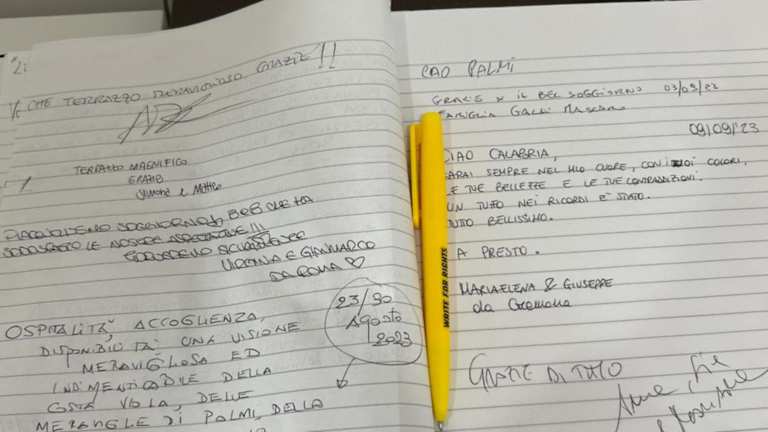 CHE TERRAZZO GRAZIE!!
TERRAZZO MAGNIFICO
GRAZIE
Simone e
SODDISFATO LE NOSTRE ASPETTATIVE!!!
E GIANMARCO
DA ROMA
23/30
AGOSTO
2023
OSPITALITÀ, ACCOGLIENZA,
DISPONIBILITÀ UNA VISIONE
MERAVIGLIOSA ED
INDIMENTICABILE DELLA
COSTA VIOLA, DELLE
DI PALMI, DELLA
CIAO PALMI
GRAZIE X IL BEL SOGGIORNO 03/09/23
FAMIGLIA GALLI
09/09/'23
CIAO CALABRIA,
SARAI SEMPRE NEL MIO CUORE, CON I TUOI COLORI,
LE TUE BELLEZZE E LE TUE CONTRADDIZIONI.
UN TUTTO NEI RICORDI E' STATO.
TUTTO BELLISSIMO.
A PRESTO.
MARIAELENA & GIUSEPPE
da Cremona
GRAZIE DI TUTTO
WRITE FOR RIGHTS